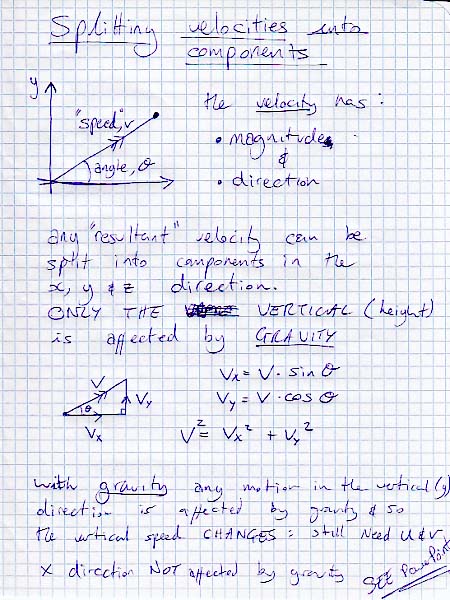 Splitting velocities into
components
y
"speed", v
angle, θ
the velocity has:
• magnitude
&
• direction
any "resultant" velocity can be
split into components in the
x, y & z direction.
ONLY THE VERTICAL (height)
is affected by GRAVITY
V
θ
Vy
Vx
Vx = V · sin θ
Vy = V · cos θ
V² = Vx² + Vy²
with gravity any motion in the vertical (y)
direction is affected by gravity & so
the vertical speed CHANGES: still need U & V
x direction NOT affected by gravity
SEE PowerPoint